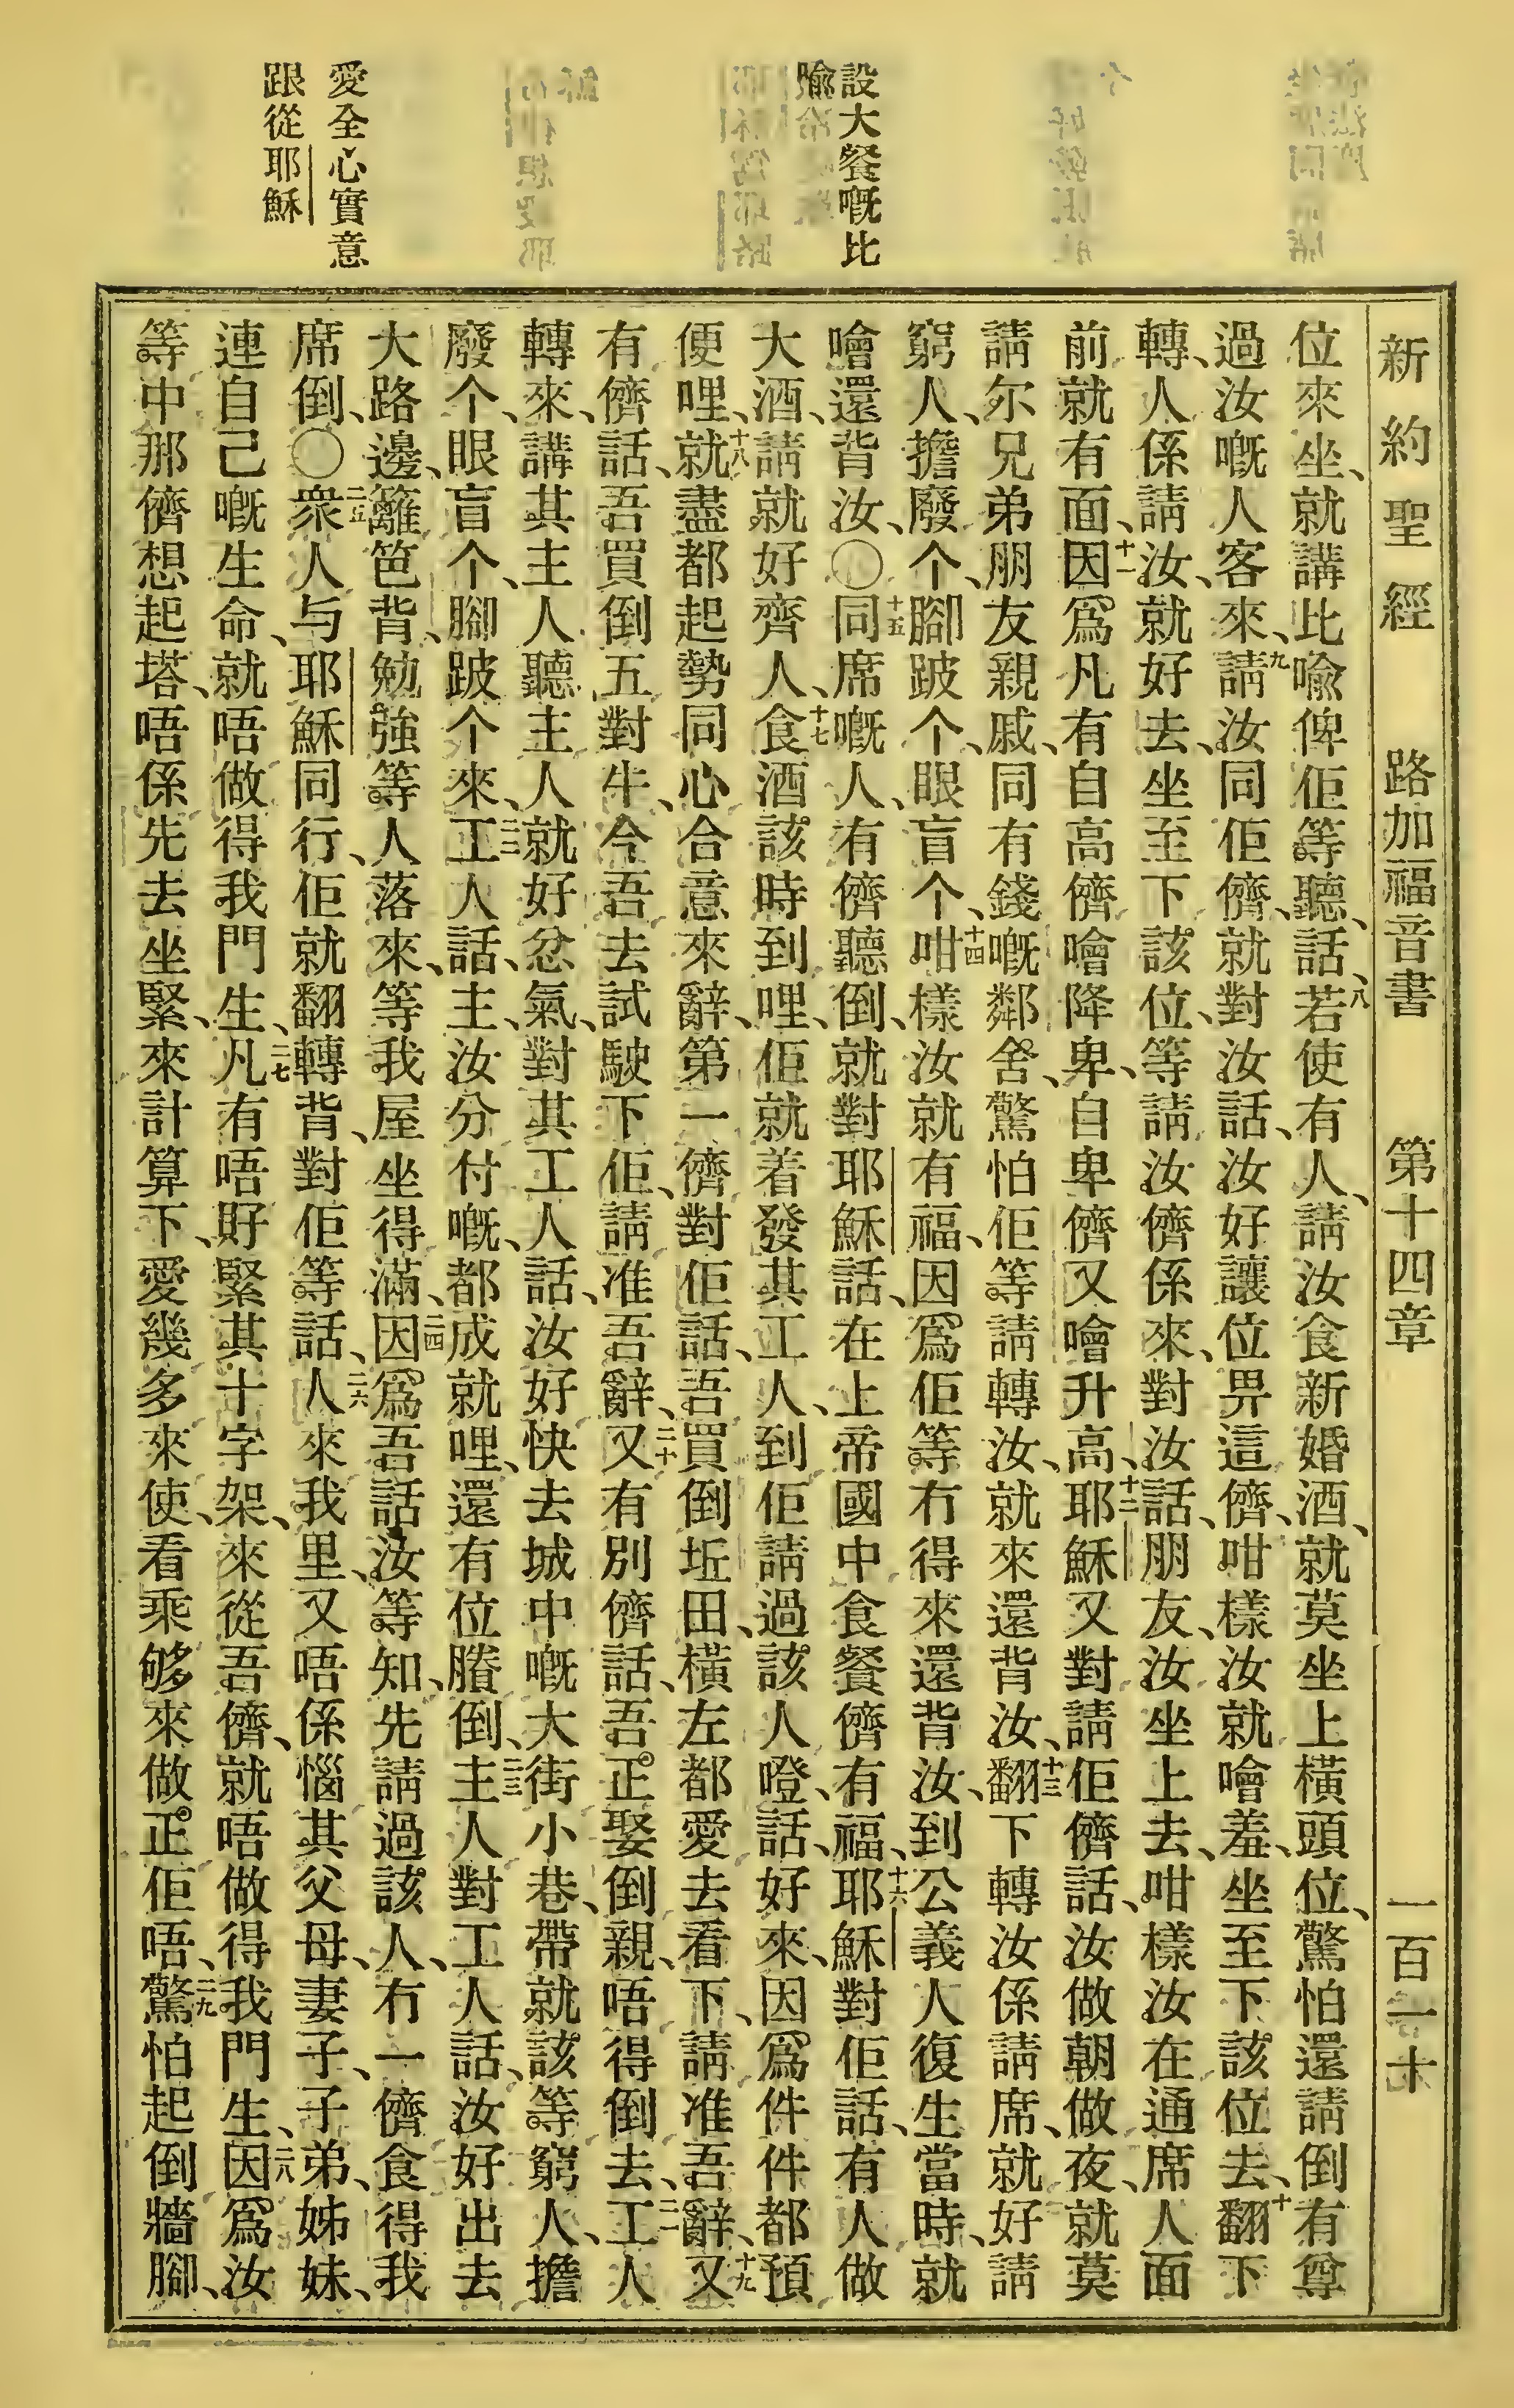 新約聖經　路加福音書　第十四章　一百一十
設大餐嘅比
喩
愛全心實意
跟從耶穌
位來坐、就講比喩俾佢等聽、話、八若使有人、請汝食新婚酒、就莫坐上橫頭位、驚怕還請倒有尊
過汝嘅人客來、九請汝同佢儕、就對汝話、汝好讓位畀這儕、咁樣汝就噲羞、坐至下該位去、十翻下
轉、人係請汝、就好去、坐至下該位、等請汝儕係來、對汝話、朋友、汝坐上去、咁樣汝在通席人面
前就有面、十一因爲凡有自高儕噲降卑、自卑儕又噲升高、十二耶穌又對請佢儕話、汝做朝做夜、就莫
請尔兄弟朋友親戚、同有錢嘅鄰舍、驚怕佢等請轉汝、就來還背汝、十三翻下轉汝係請席、就好請
窮人、擔廢个、腳跛个、眼盲个、十四咁樣汝就有福、因爲佢等冇得來還背汝、到公義人復生當時、就
噲還背汝、〇十五同席嘅人、有儕聽倒、就對耶穌話、在上帝國中食餐儕有福、十六耶穌對佢話、有人做
大酒、請就好齊人、十七食酒該時到哩、佢就着發其工人、到佢請過該人嗒、話、好來、因爲件件都預
便哩、十八就盡都起勢同心合意來辭、第一儕對佢話、吾買倒坵田、橫左都愛去看下、請准吾辭、十九又
有儕話、吾買倒五對牛、今吾去試駛下佢、請准吾辭、二十又有別儕話、吾正娶倒親、唔得倒去、二一工人
轉來、講其主人聽、主人就好忿氣、對其工人話、汝好快去城中嘅大街小巷、帶就該等窮人、擔
廢个、眼盲个、腳跛个來、二二工人話、主、汝分付嘅、都成就哩、還有位賸倒、二三主人對工人話、汝好出去
大路邊、籬笆背、勉強等人落來、等我屋坐得滿、二四因爲吾話汝等知、先請過該人、冇一儕食得我
席倒、〇二五衆人与耶穌同行、佢就翻轉背、對佢等話、二六人來我里、又唔係惱其父母、妻子、子弟、姊妹、
連自己嘅生命、就唔做得我門生、二七凡有唔䝼緊其十字架、來從吾儕、就唔做得我門生、二八因爲汝
等中那儕想起塔、唔係先去坐緊、來計算下、愛幾多來使、看乘够來做正佢唔、二九驚怕起倒牆腳、